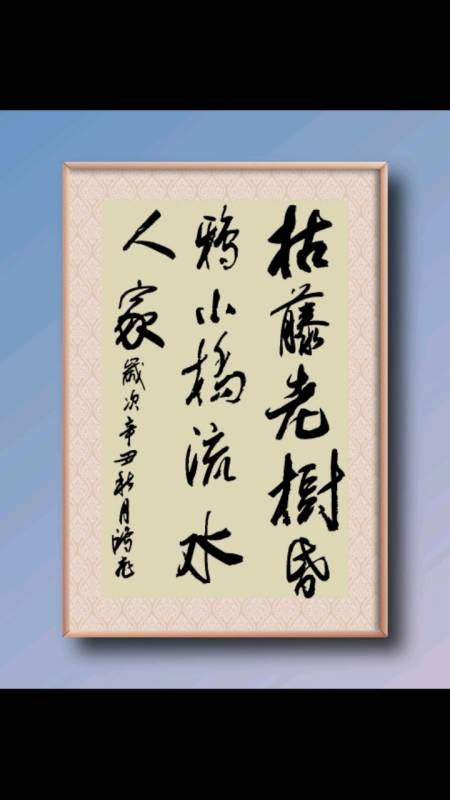 枯藤老樹昏
鴉小橋流水
人家
歲次辛丑秋月鴻飛